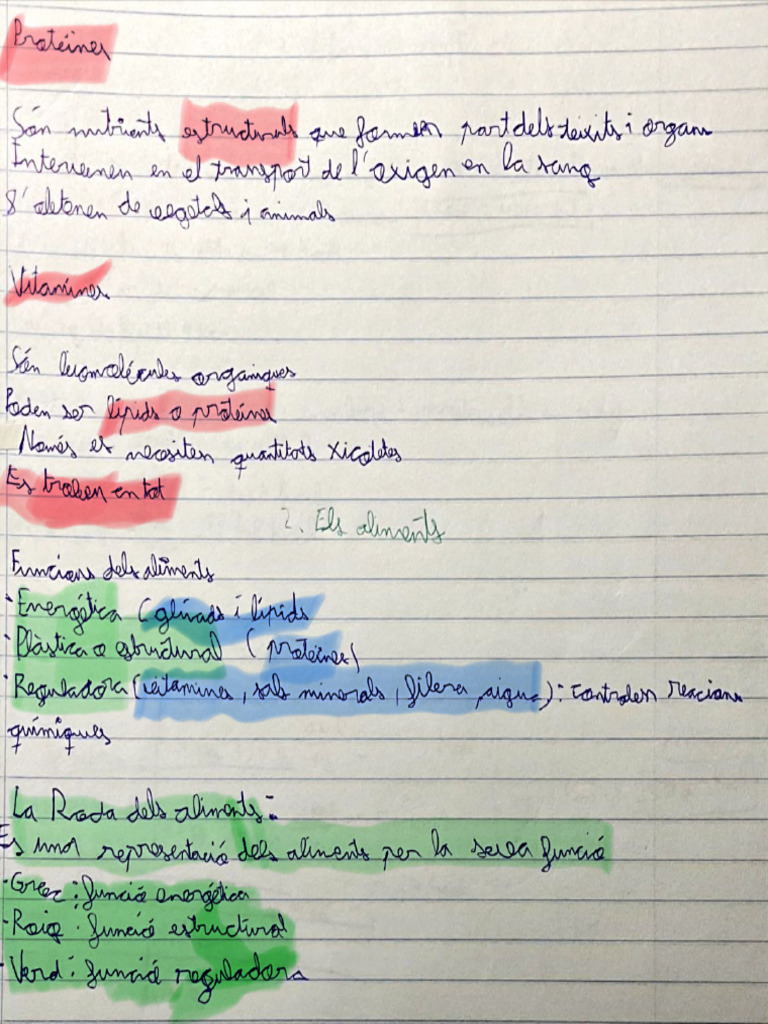 Proteïnes
Són nutrients estructurals que formen part dels teixits i organs
Intervenen en el transport de l'oxigen en la sang
S'obtenen de vegetals i animals
Vitamines
Són biomolécules organiques
Poden ser lípids o proteïnes
Només es necesiten quantitats xicoletes
Es troben en tot
2. Els aliments
Funcions dels aliments
· Energética (glúcids i lípids
· Plàstica o estructural (proteïnes)
· Reguladora (vitamines, sals minerals, fibra, aigua): controlen reaccions
químiques
La Roda dels aliments:
Es una representació dels aliments per la seva funció
· Groc: funció energética
· Roig: funció estructural
· Verd: funció reguladora